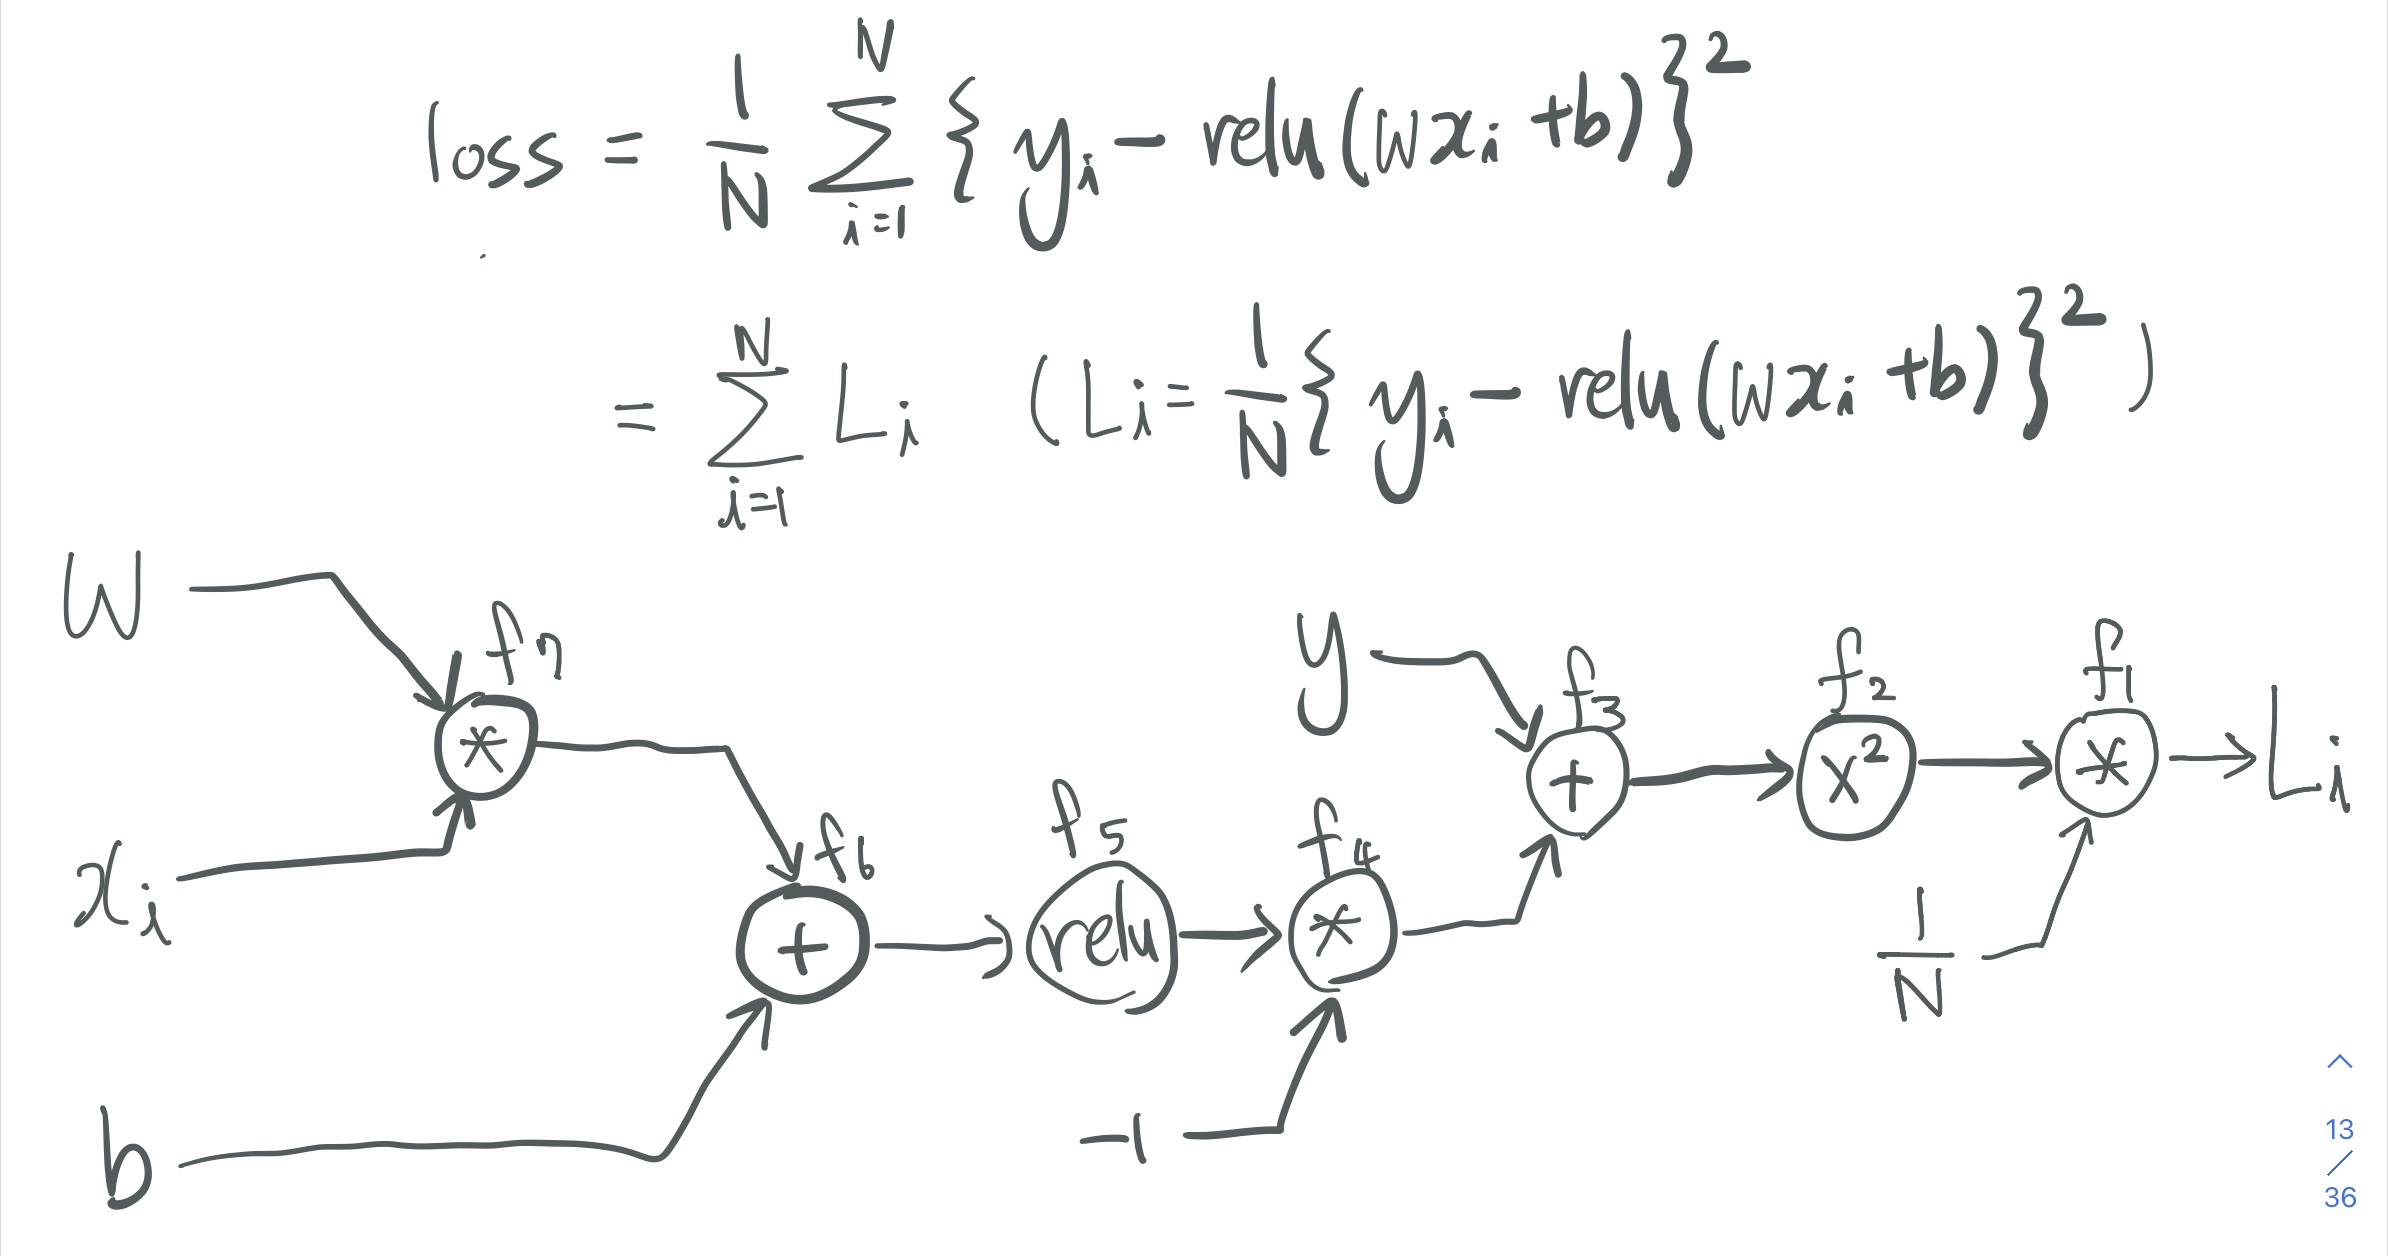 loss = 1/N Σ_{i=1}^{N} { y_i − relu(Wx_i + b) }²
= Σ_{i=1}^{N} L_i ( L_i = 1/N { y_i − relu(Wx_i + b) }² )
W
f7
*
x_i
b
f6
+
f5
relu
f4
*
-1
y
f3
+
f2
x²
f1
*
1/N
L_i
13
/
36